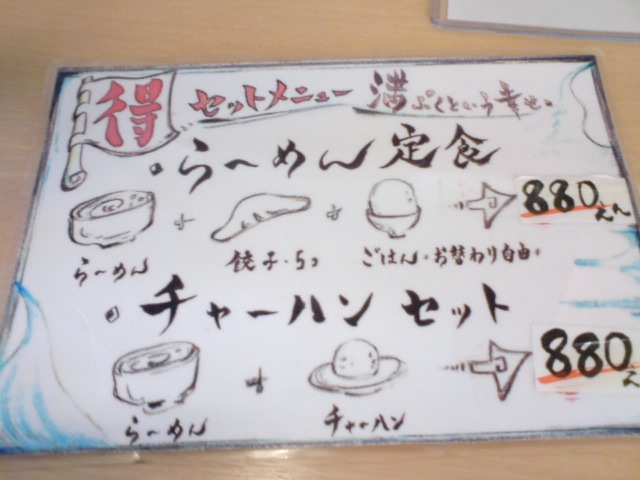 得 セットメニュー 満ぷくという幸せ。
らーめん定食
880えん
らーめん 餃子・5つ ごはん・お替わり自由・
チャーハン セット
880
らーめん チャーハン